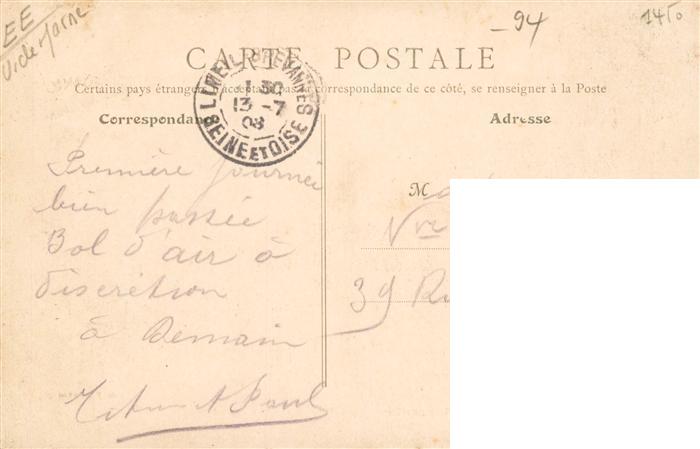 EE
Val de Marne
-94
1450
CARTE POSTALE
Certains pays étrangers n'acceptant pas la correspondance de ce côté, se renseigner à la Poste
Correspondance
Adresse
LIMEIL-BREVANNES
1 30
13 -7
08
SEINE ET OISE
Première journée
bien passée
Bol d'air à
discrétion
à Demain
Paul
M
Vve
39 Ru